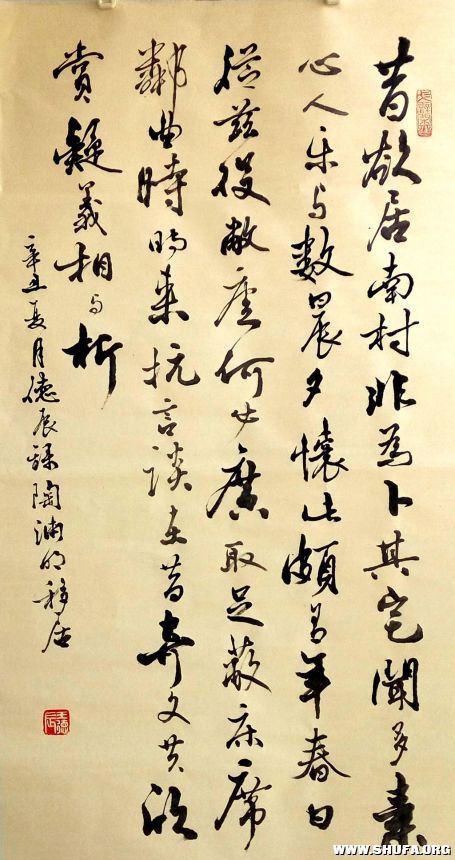 昔欲居南村非為卜其宅聞多素
心人乐与数晨夕懷此頗有年春日
從兹役敝廬何必廣取足蔽床席
鄰曲時時来抗言談在昔奇文共欣
賞疑義相与析
辛丑夏月德辰録陶渊明移居
WWW.SHUFA.ORG